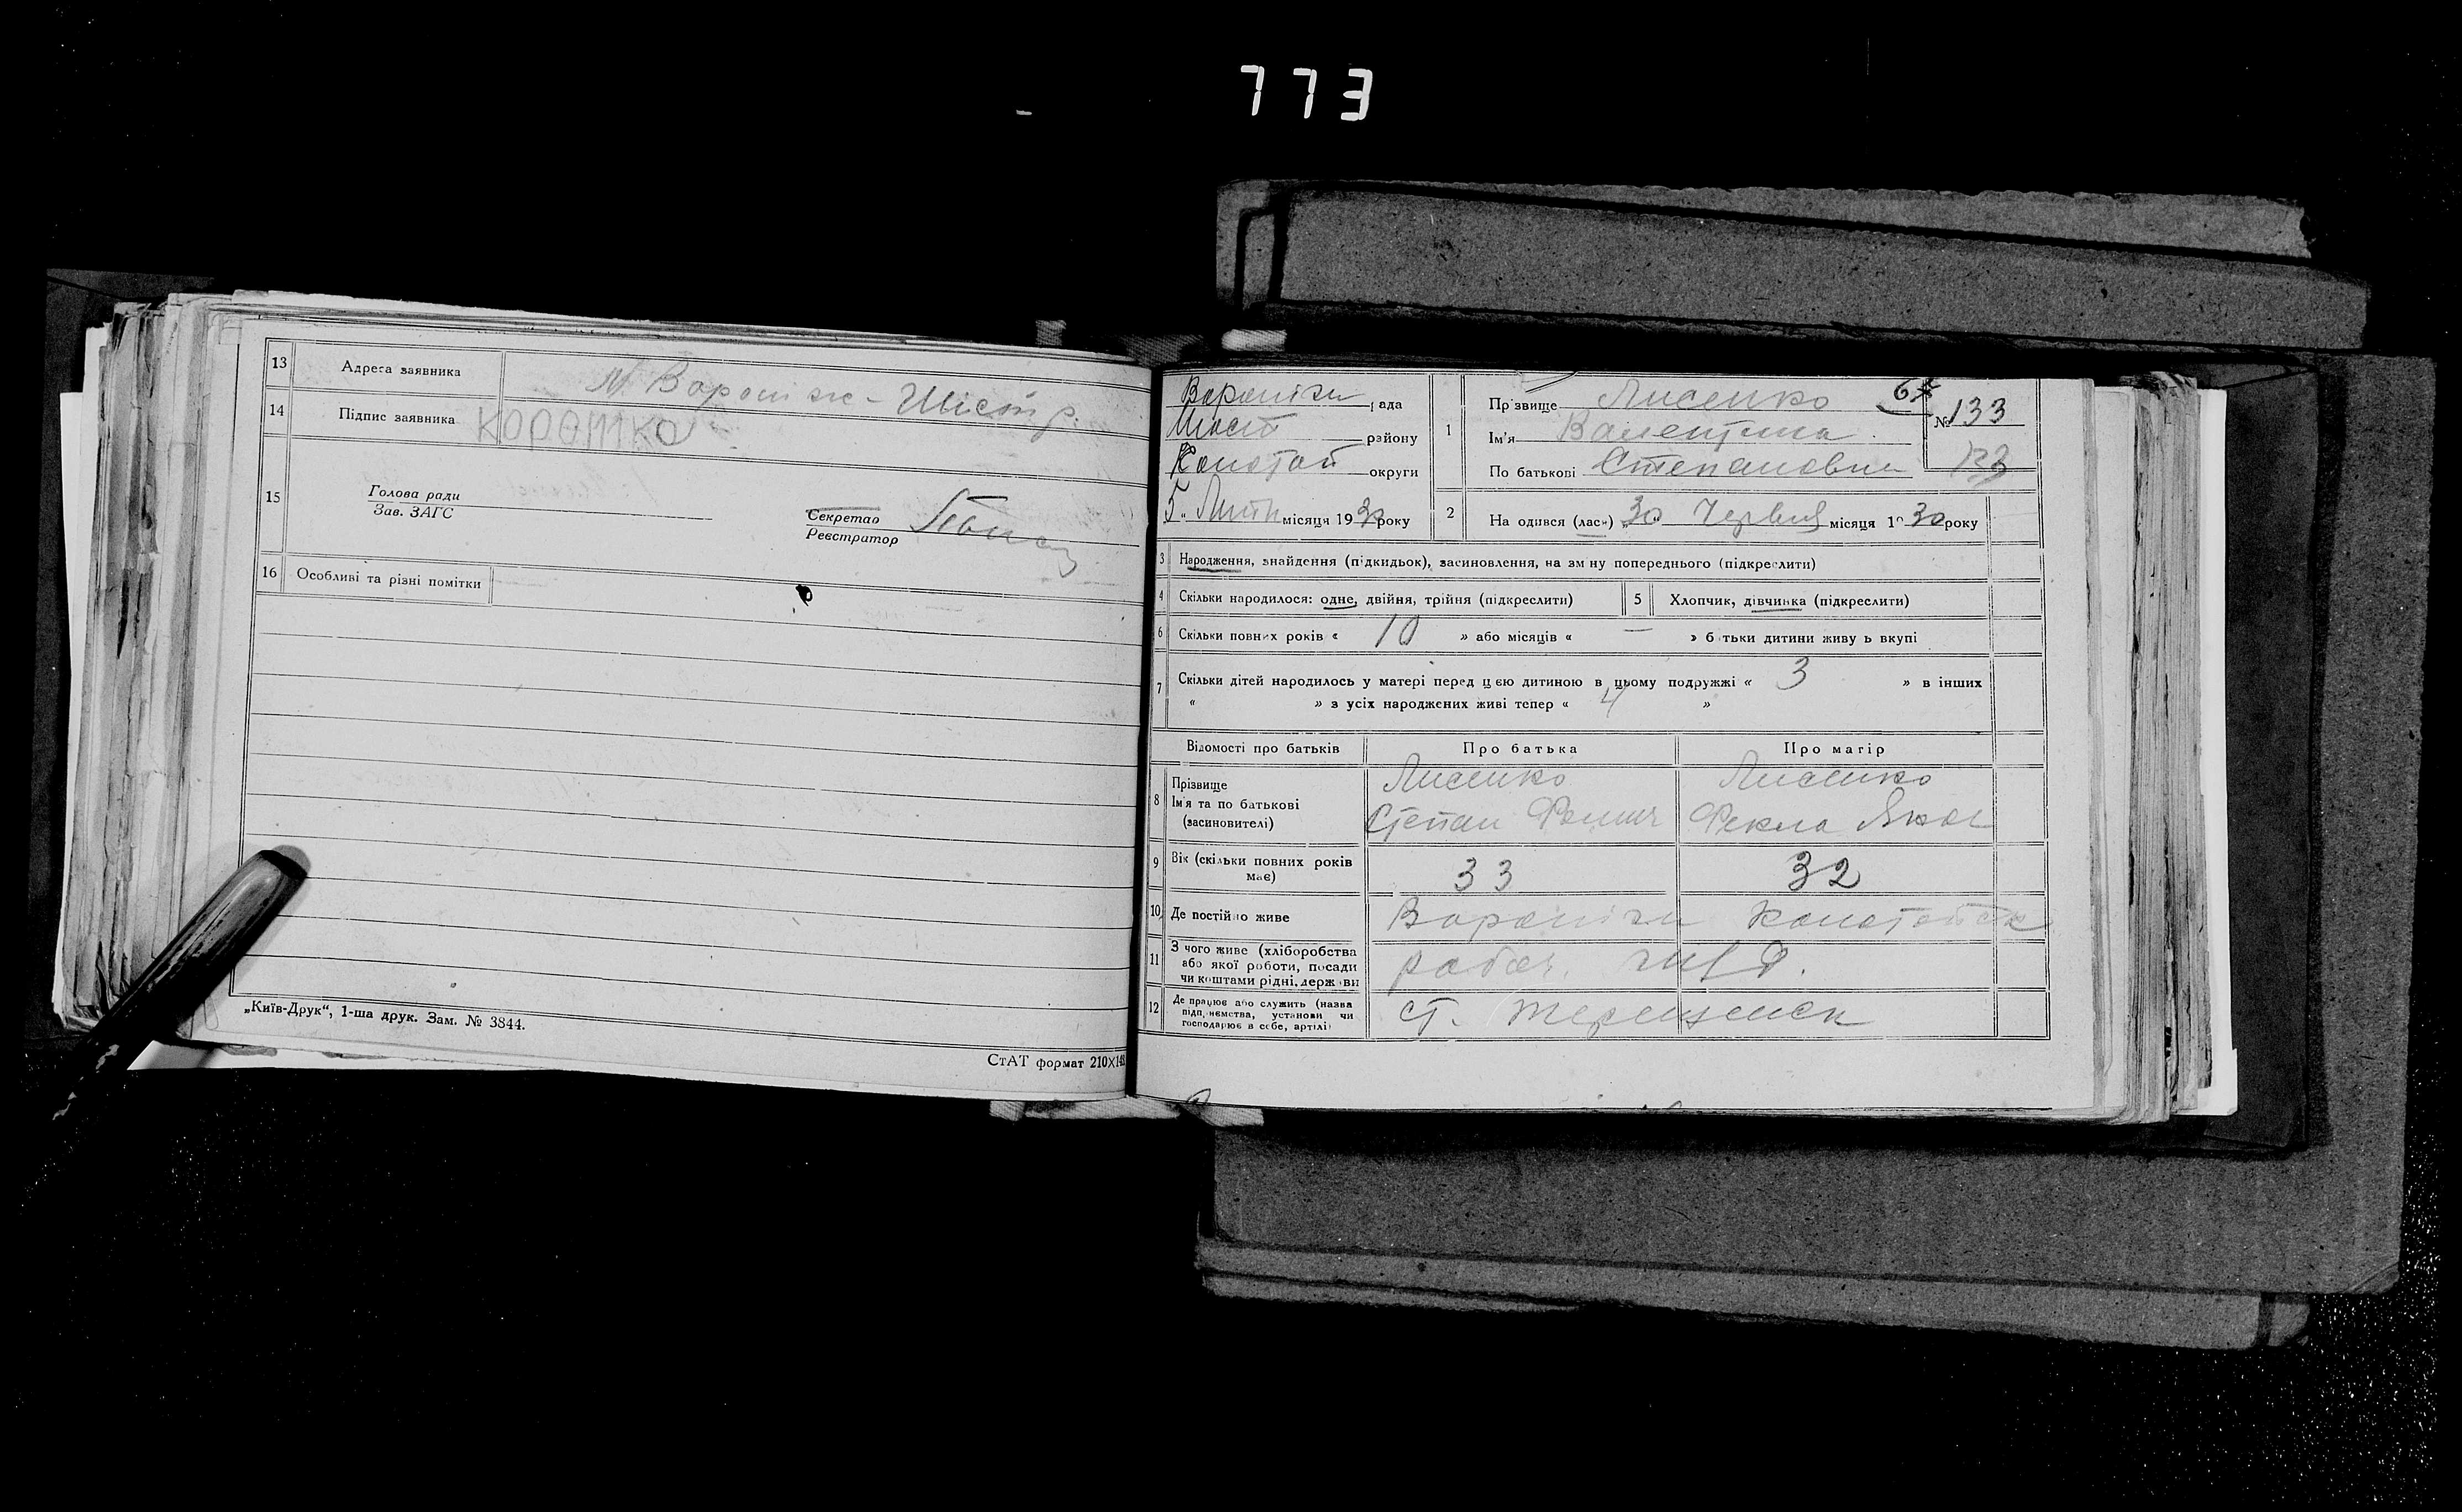 773
13 Адреса заявника М. Вороніж - Шист р.
14 Підпис заявника Коротко
15 Голова ради
Зав. ЗАГС
Секретар
Реєстратор
16 Особливі та різні помітки
„Київ-Друк“, 1-ша друк. Зам. № 3844.
СтАТ формат 210×148
Вороніжи рада
Шост району
Конотоп округи
5 „ Липн місяця 1930 року
1 Прізвище Лисенко 67
Ім'я Валентина
По батькові Степановна
№ 133
133
2 Народився (лась) „30 Червня місяця 1930 року
3 Народження, знайдення (підкидьок), засиновлення, на зміну попереднього (підкреслити)
4 Скільки народилося: одне, двійня, трійня (підкреслити) 5 Хлопчик, дівчинка (підкреслити)
6 Скільки повних років « 10 » або місяців « — » батьки дитини живуть вкупі
7 Скільки дітей народилось у матері перед цією дитиною в цьому подружжі « 3 » в інших
« » з усіх народжених живі тепер « 4 »
Відомості про батьків Про батька Про матір
8 Прізвище Лисенко Лисенко
Ім'я та по батькові Степан Фекла Яков
(засиновителі)
9 Вік (скільки повних років 33 32
має)
10 Де постійно живе Вороніжи Конотопск
11 З чого живе (хліборобства
або якої роботи, посади робоч.
чи коштами рідні, держави
12 Де працює або служить (назва
підприємства, установи чи ст. Терещенск
господарює в себе, артілі)